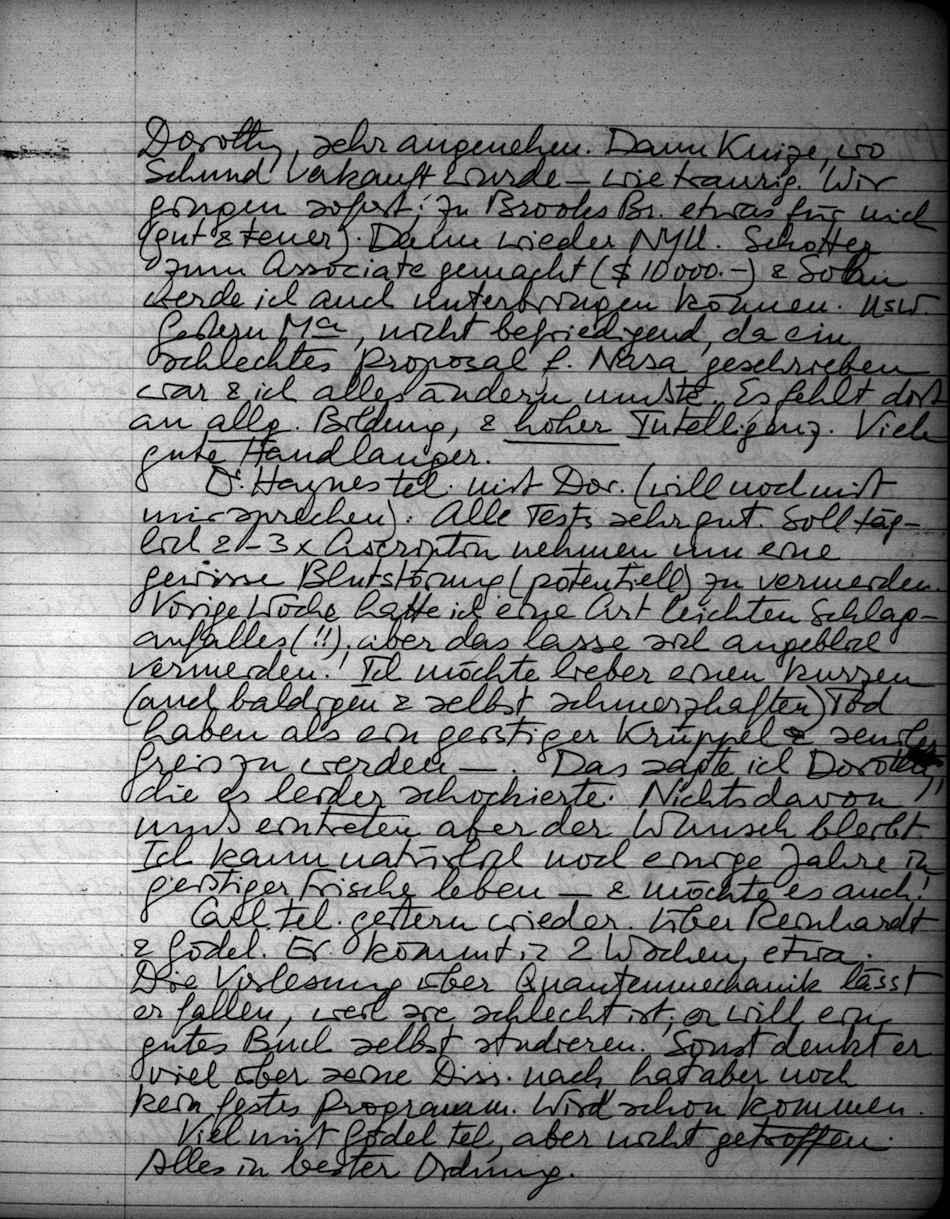 Dorothy, sehr angenehm. Dann Knize, wo
Schund verkauft wurde – wie traurig. Wir
gingen sofort zu Brooks Br. etwas für mich
(gut & teuer). Dann wieder NYU. Schotter
zum Associate gemacht ($ 10000.–) &
werde ich auch unterbringen können. usw.
Gestern Ma, nicht befriedigend, da ein
schlechtes proposal f. Nasa geschrieben
war & ich alles ändern musste. Es fehlt dort
an allg. Bildung, & hoher Intelligenz. Viele
gute Handlanger.
Dr. Haynes tel. mit Dor. (will noch mit
mir sprechen). Alle Tests sehr gut. Soll täg-
lich 2–3 x Ascriptin nehmen um eine
gewisse Blutstörung (potentiell) zu vermeiden.
Vorige Woche hatte ich eine Art leichten Schlag-
anfalles (!!), aber das lasse sich angeblich
vermeiden. Ich möchte lieber einen kurzen
(auch baldigen & selbst schmerzhaften) Tod
haben als ein geistiger Krüppel & seniler
Greis zu werden –. Das sagte ich Dorothy,
die es leider schockierte. Nichts davon
muss eintreten aber der Wunsch bleibt.
Ich kann natürlich noch einige Jahre in
geistiger Frische leben – & möchte es auch!
Carl tel. gestern wieder. Über Reinhardt
& Gödel. Er kommt in 2 Wochen, etwa.
Die Vorlesung über Quantenmechanik lässt
er fallen, weil sie schlecht ist; er will ein
gutes Buch selbst studieren. Sonst denkt er
viel über seine Diss. nach, hat aber noch
kein festes Programm. Wird schon kommen.
Viel mit Gödel tel, aber nicht getroffen.
Alles in bester Ordnung.